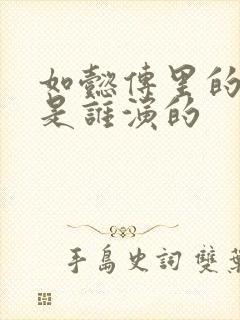 如懿傳里的
是誰演的
手島史詞 雙葉